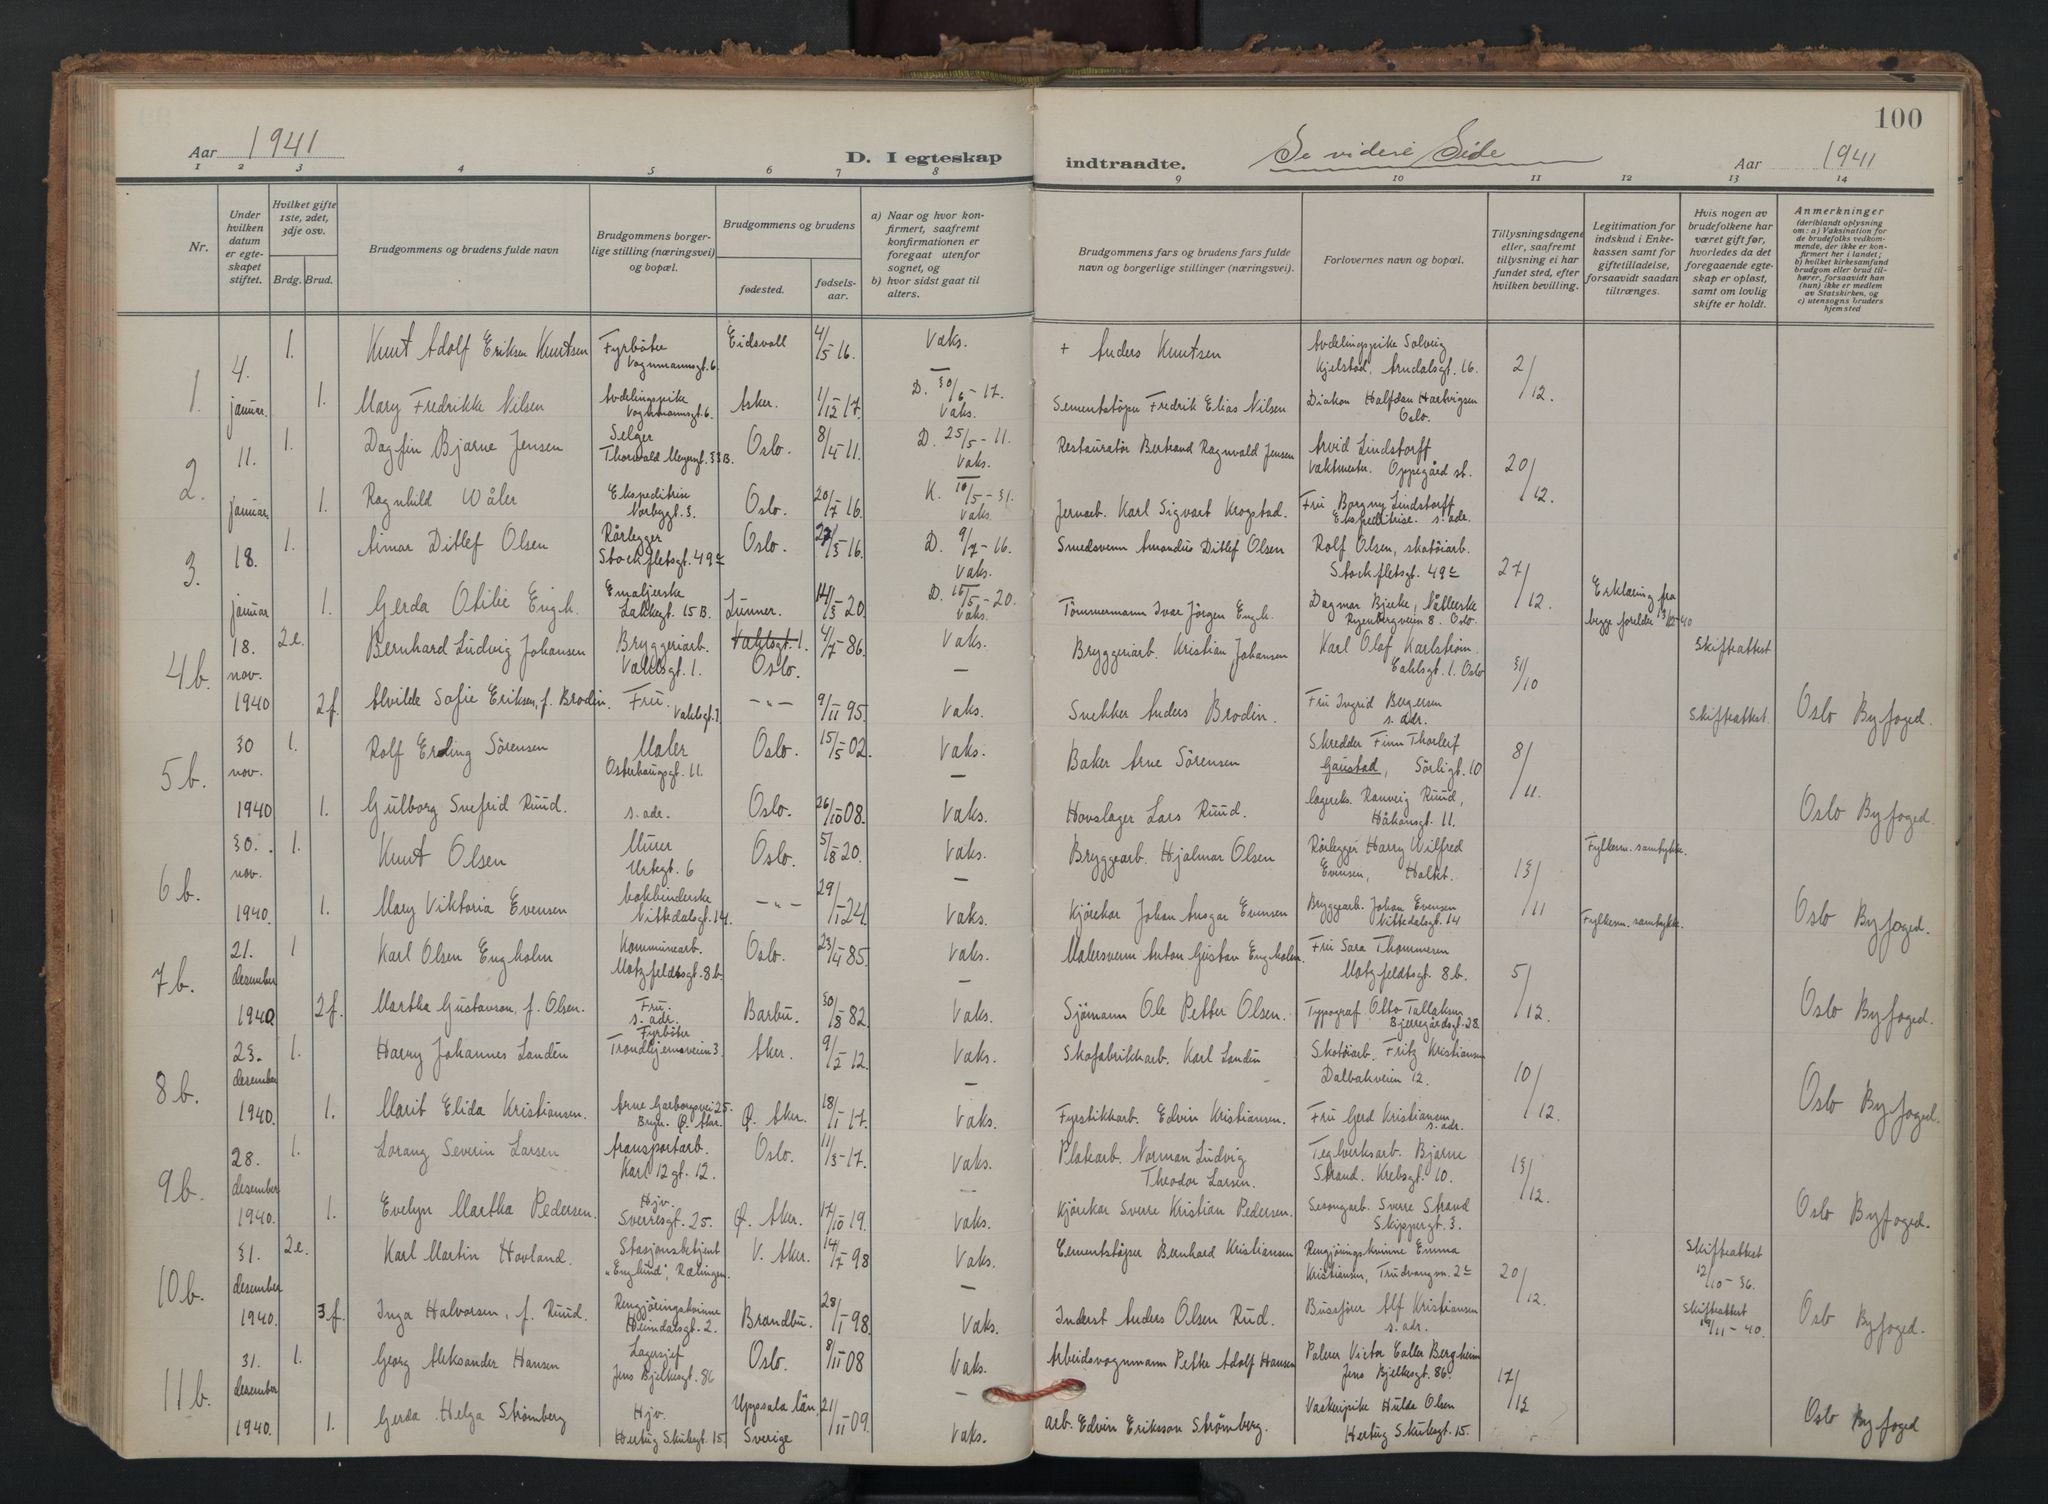 100
Aar 1941
D. I egteskap
indtraadte.
Se videre Side
Aar 1941
1 2 3 4 5 6 7 8 9 10 11 12 13 14
Nr.
Under hvilken datum er egteskapet stiftet.
Hvilket gifte 1ste, 2det, 3dje osv.
Brdg. Brud.
Brudgommens og brudens fulde navn
Brudgommens borgerlige stilling (næringsvei) og bopæl.
Brudgommens og brudens
fødested.
fødselsaar.
a) Naar og hvor konfirmert, saafremt konfirmationen er foregaat utenfor sognet, og
b) hvor sidst gaat til alters.
Brudgommens fars og brudens fars fulde navn og borgerlige stillinger (næringsvei).
Forlovernes navn og bopæl.
Tillysningsdagene eller, saafremt tillysning ei har fundet sted, efter hvilken bevilling.
Legitimation for indskud i Enkekassen samt for giftetilladelse, forsaavidt saadan tiltrænges.
Hvis nogen av brudefolkene har været gift før, hvorledes da det foregaaende egteskap er opløst, samt om lovlig skifte er holdt.
Anmerkninger
(deriblandt oplysning om: a) Vaksination for de brudefolks vedkommende, der ikke er konfirmert her i landet; b) hvilket kirkesamfund brudgom eller brud tilhører, forsaavidt han (hun) ikke er medlem av Statskirken, og c) utensogns bruders hjemsted
1. 4. januar. 1. Knut Adolf Eriksen Knutsen Fyrbøter Vognmannsgt. 6 Eidsvoll 4/5 16. Vaks. + Anders Knutsen Avdelingspike Solveig Kjelstad, Arndalsgt. 16. 2/12.
1. Mary Fredrikke Nilsen Avdelingspike Vognmannsgt. 6. Asker. 1/12 17. D. 30/6 - 17. Vaks. Sementstøper Fredrik Elias Nilsen Diakon Halfdan Hartvigsen Oslo.
2. 11. januar. 1. Dagfin Bjarne Jensen Selger Thorvald Meyersgt. 33 B. Oslo. 8/4 11. D. 25/5 - 11. Vaks. Restauratør Bertrand Ragnvald Jensen Arvid Lindstorff Vaktmester. Oppegård st. 20/12.
1. Ragnhild Wåler Ekspeditrise Norbygt. 3. Oslo. 20/7 16. K. 10/5 - 31. Vaks. Jernarb. Karl Sigvart Krogstad. Fru Borgny Lindstorff Ekspeditrise. s. adr.
3. 18. januar 1. Aimar Ditlef Olsen Rørlegger Stockfletsgt. 49 c Oslo. 16. D. 9/7 - 16. Vaks. Smedsvenn Amandus Ditlef Olsen Rolf Olsen, skotøiarb. Stockfletsgt. 49 c 27/12.
1. Gerda Otilie Engh. Emaljerske Lakkegt. 15 B. Lunner. 14/3 20. D. 16/5 - 20. Vaks. Tømmermann Ivar Jørgen Engh. Dagmar Bjerke, Nåtlerske Ryenbergveien 8. Oslo. Erklæring fra begge foreldre 13/12-40
4b. 18. nov. 1940 2e. Bernhard Ludvig Johansen Bryggeriarb. Vahlsgt. 1. Vahlsgt. 1. Oslo. 4/7 86. Vaks. Bryggeriarb. Kristian Johansen Karl Olaf Karlstrøm. Vahlsgt. 1. Oslo 31/10 Skifteattest
2f. Alvilde Sofie Eriksen, f. Brodin. Fru. Vahlsgt. 1 -"- 9/11 95. Vaks. Snekker Anders Brodin. Fru Ingrid Bergersen s. adr. Skifteattest. Oslo Byfoged.
5b. 30 nov. 1940 1. Rolf Erling Sørensen Maler Osterhaugsgt. 11. Oslo. 15/5 02. Vaks. Baker Arne Sørensen Skredder Finn Thorleif Gaustad, Sørligt. 10 8/11.
1. Gulborg Snefrid Ruud. s. adr. Oslo. 26/10 08. Vaks. Hovslager Lars Ruud. lagereks. Ranveig Ruud, Håkonsgt. 11. Oslo Byfoged.
6b. 30. nov. 1940. 1. Knut Olsen Murer Urtegt. 6 Oslo. 5/8 20. Vaks. Bryggearb. Hjalmar Olsen Rørlegger Harry Wilfred Evensen, 13/11 Fylkesm. samtykke.
1. Mary Viktoria Evensen bokbinderske Nittedalsgt. 14. -"- 29/1 24. Vaks. Kjørekar Johan Ansgar Evensen Bryggearb. Johan Evensen Nittedalsgt. 14 Fylkesm. samtykke. Oslo Byfoged.
7b. 21. desember 1940. 1 Karl Olsen Engholm Kommunearb. Motzfeldtsgt. 8b. Oslo. 23/4 85. Vaks. Malersvenn Anton Gustav Engholm. Fru Sara Thommesen Motzfeldtsgt. 8b. 5/12.
2f. Martha Gustavson, f. Olsen. Fru. s. adr. Barbu. 30/8 82. Vaks. Sjømann Ole Petter Olsen. Typograf Otto Tallaksen Bjerregårdsgt. 28. Oslo Byfoged.
8b. 23. desember 1940. 1. Harry Johannes Landén Fyrbøter Trondhjemsveien 3. Aker. 9/2 12. Vaks. Skofabrikkarb. Karl Landén Skotøiarb. Fritz Kristiansen Dalbakveien 12. 10/12.
1. Marit Elida Kristiansen. Arne Garborgsvei 25. Bryn. Ø. Aker. Ø. Aker. 18/1 17. Vaks. Fyrstikkarb. Edvin Kristiansen. Fru Gerd Kristiansen s. adr. Oslo Byfoged.
9b. 28. desember 1940. 1. Lorang Severin Larsen transportarb. Karl 12 gt. 12. Oslo. 11/3 17. Vaks. Platearb. Norman Ludvig Theodor Larsen. Teglverksarb. Bjarne Strand. Krebsgt. 10. 13/12.
1. Evelyn Martha Pedersen. Hjv. Sverresgt. 25. Ø. Aker. 17/10 19. Vaks. Kjørekar Sverre Kristian Pedersen. Sesongarb. Sverre Strand Skippergt. 3. Oslo Byfoged.
10b. 31. desember 1940. 2e. Karl Martin Hovland. Stasjonsbetjent "Englund", Rælingen. V. Aker. 14/7 98 Vaks. Cementstøper Bernhard Kristiansen Rengjøringskvinne Emma Kristiansen, Trudvangvn. 2 c 20/12. Skifteattest 12/10 - 36.
3f. Inga Halvorsen, f. Ruud. Rengjøringskvinne Heimdalsgt. 2. Brandbu. 28/1 98. Vaks. Inderst Anders Olsen Rud. Bussfører Alf Kristiansen s. adr. Skifteattest 19/11 - 40. Oslo Byfoged.
11b. 31. desember 1940. 1. Georg Aleksander Hansen Lagersjef Jens Bjelkesgt. 86 Oslo. 8/11 08 Vaks. Arbeidsvognmann Petter Adolf Hansen Palerer Victor Caller Bergheim Jens Bjelkesgt. 86. 17/12
1. Gerda Helga Strømberg Hjv. Hertug Skulesgt. 15. Uppsala län, Sverige 21/11 09. Vaks. arb. Edvin Eriksson Strømberg. Vaskeripike Hulda Olsen Hertug Skulesgt. 15. Oslo Byfoged